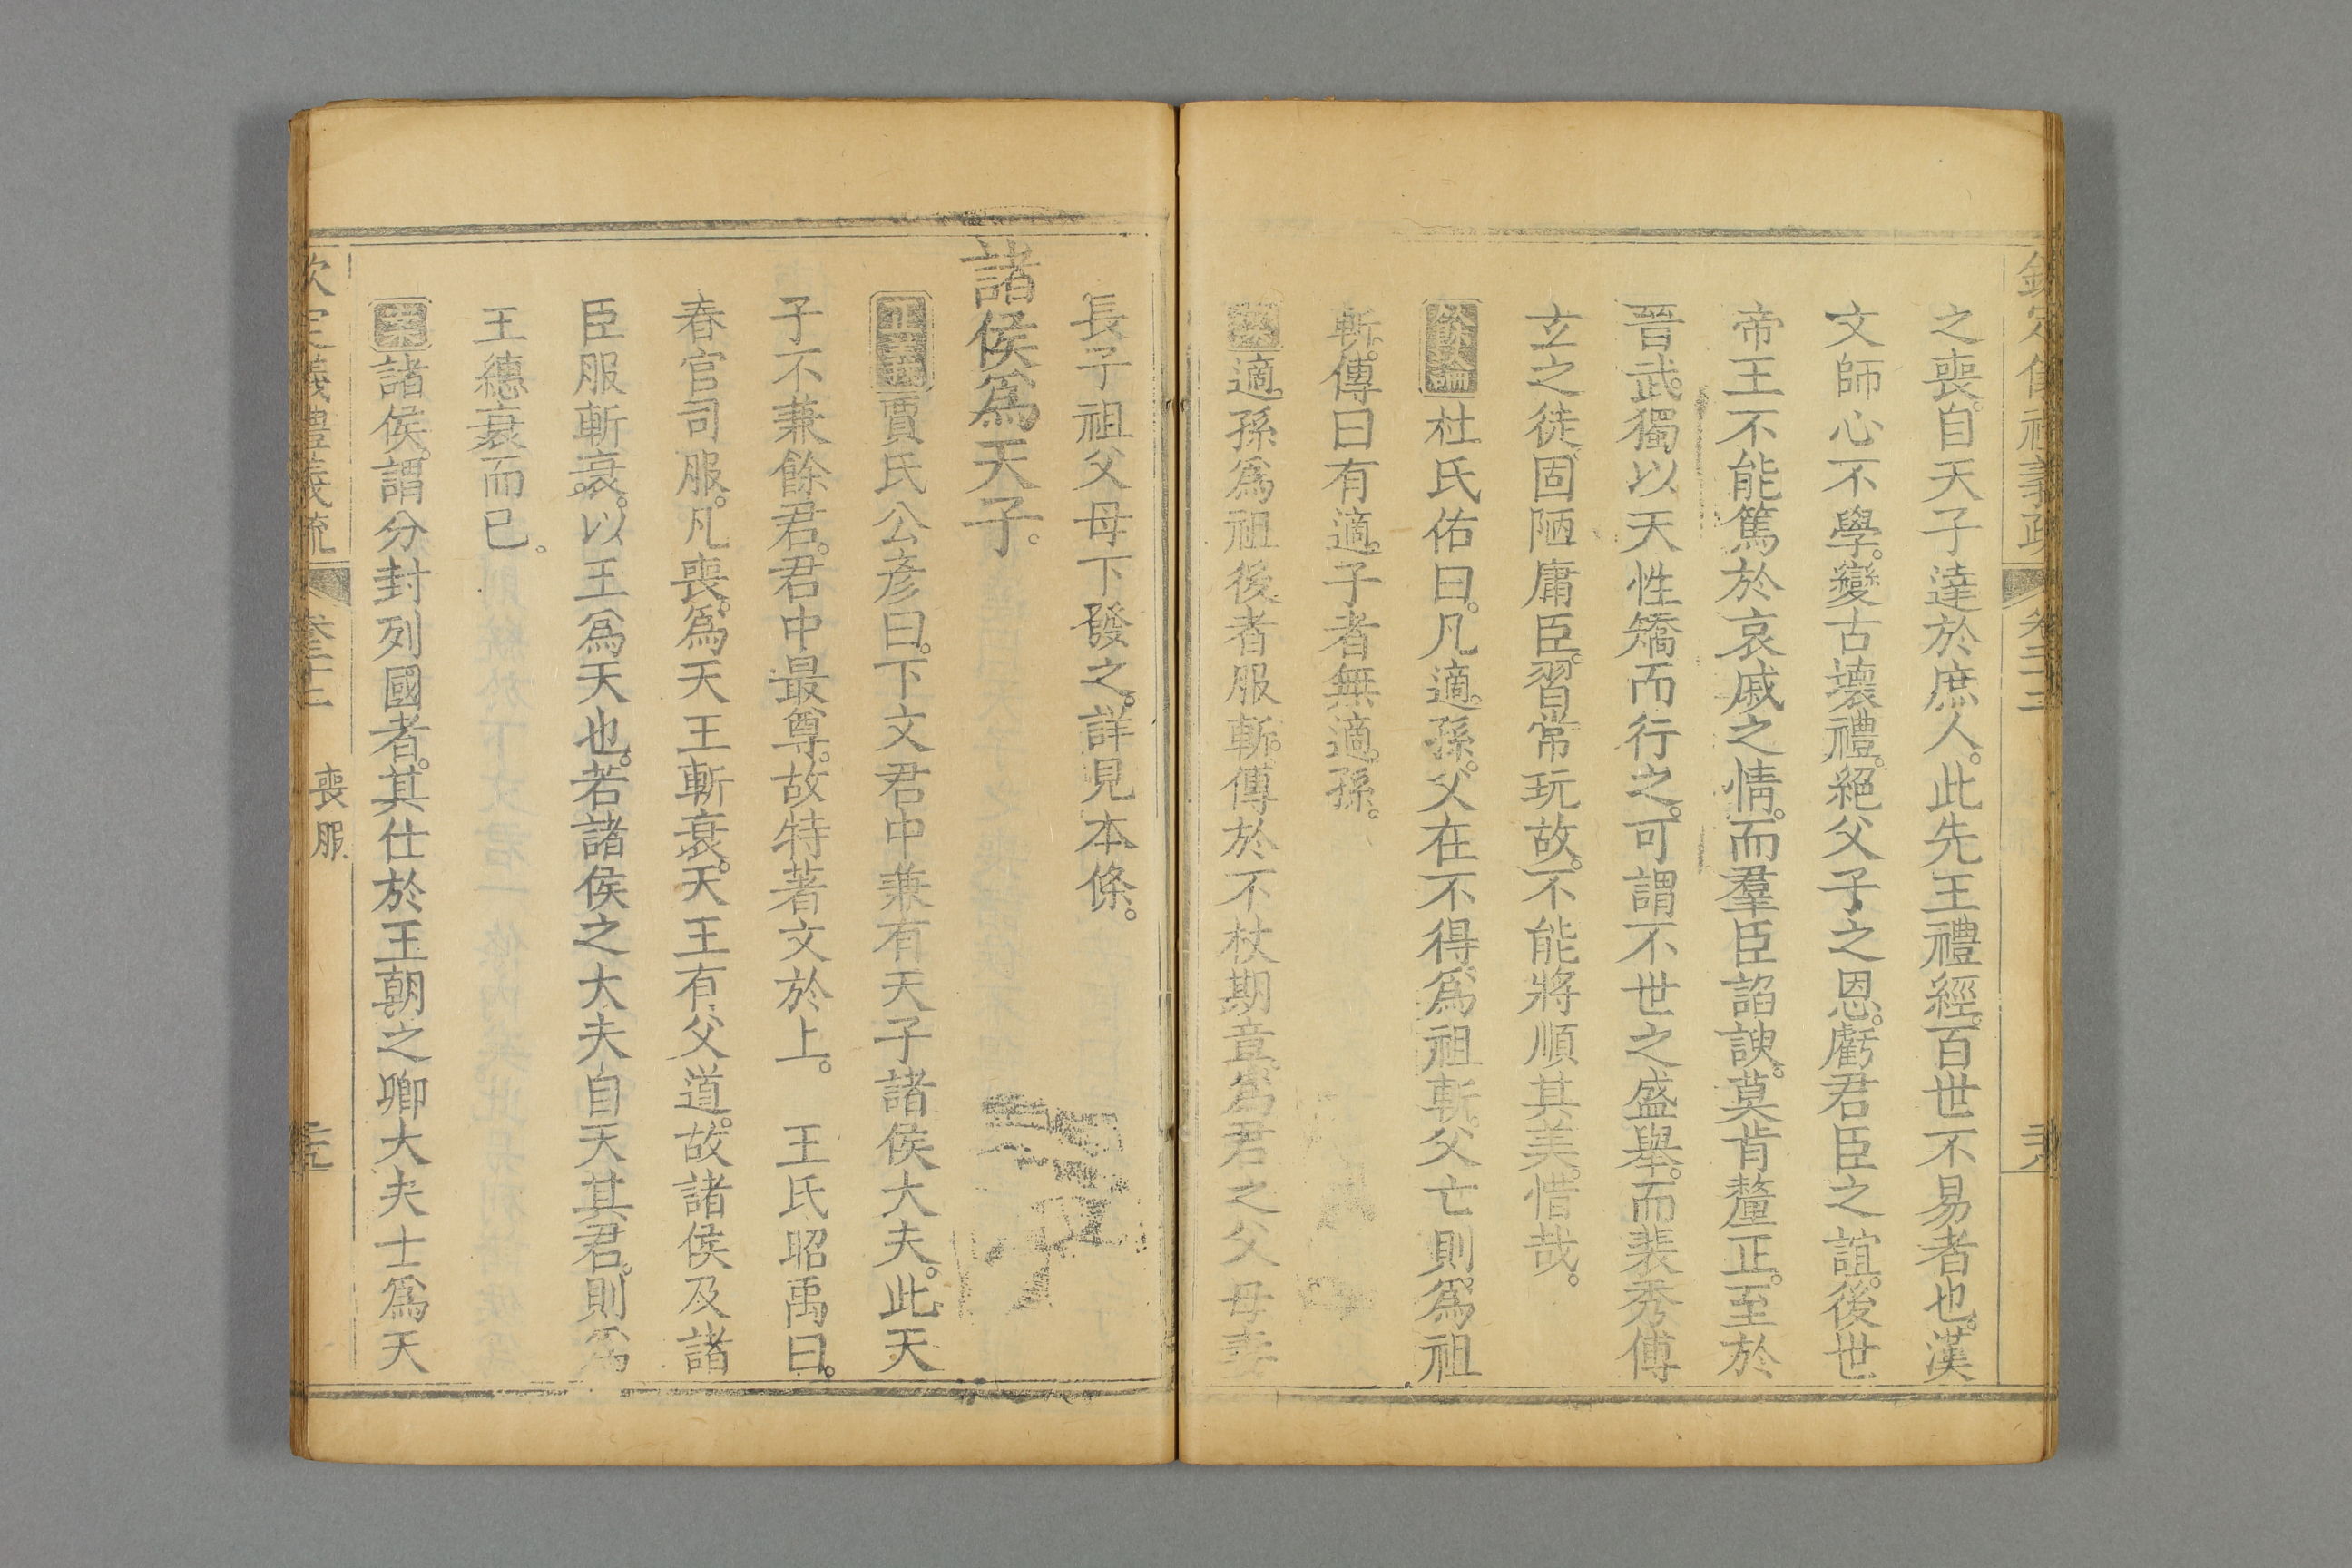 欽定儀禮義疏 卷二十二 二十八
之喪。自天子達於庶人。此先王禮經。百世不易者也。漢
文師心不學。變古壞禮。絕父子之恩。虧君臣之誼。後世
帝王不能篤於哀戚之情。而羣臣諂諛。莫肯釐正。至於
晉武。獨以天性矯而行之。可謂不世之盛舉。而裴秀傅
玄之徒。固陋庸臣。習常玩故。不能將順其美。惜哉。
餘論杜氏佑曰。凡適孫。父在不得爲祖斬。父亡則爲祖
斬。傳曰。有適子者無適孫。
案適孫爲祖後者服斬。傳於不杖期章爲君之父母妻
長子祖父母下發之。詳見本條。
諸侯爲天子。
正義賈氏公彥曰。下文君中兼有天子諸侯大夫。此天
子不兼餘君。君中最尊。故特著文於上。 王氏昭禹曰。
春官司服。凡喪。爲天王斬衰。天王有父道。故諸侯及諸
臣服斬衰。以王爲天也。若諸侯之大夫自天其君。則爲
王繐衰而已。
案諸侯。謂分封列國者。其仕於王朝之卿大夫士爲天
欽定儀禮義疏 卷二十二 喪服 二十九